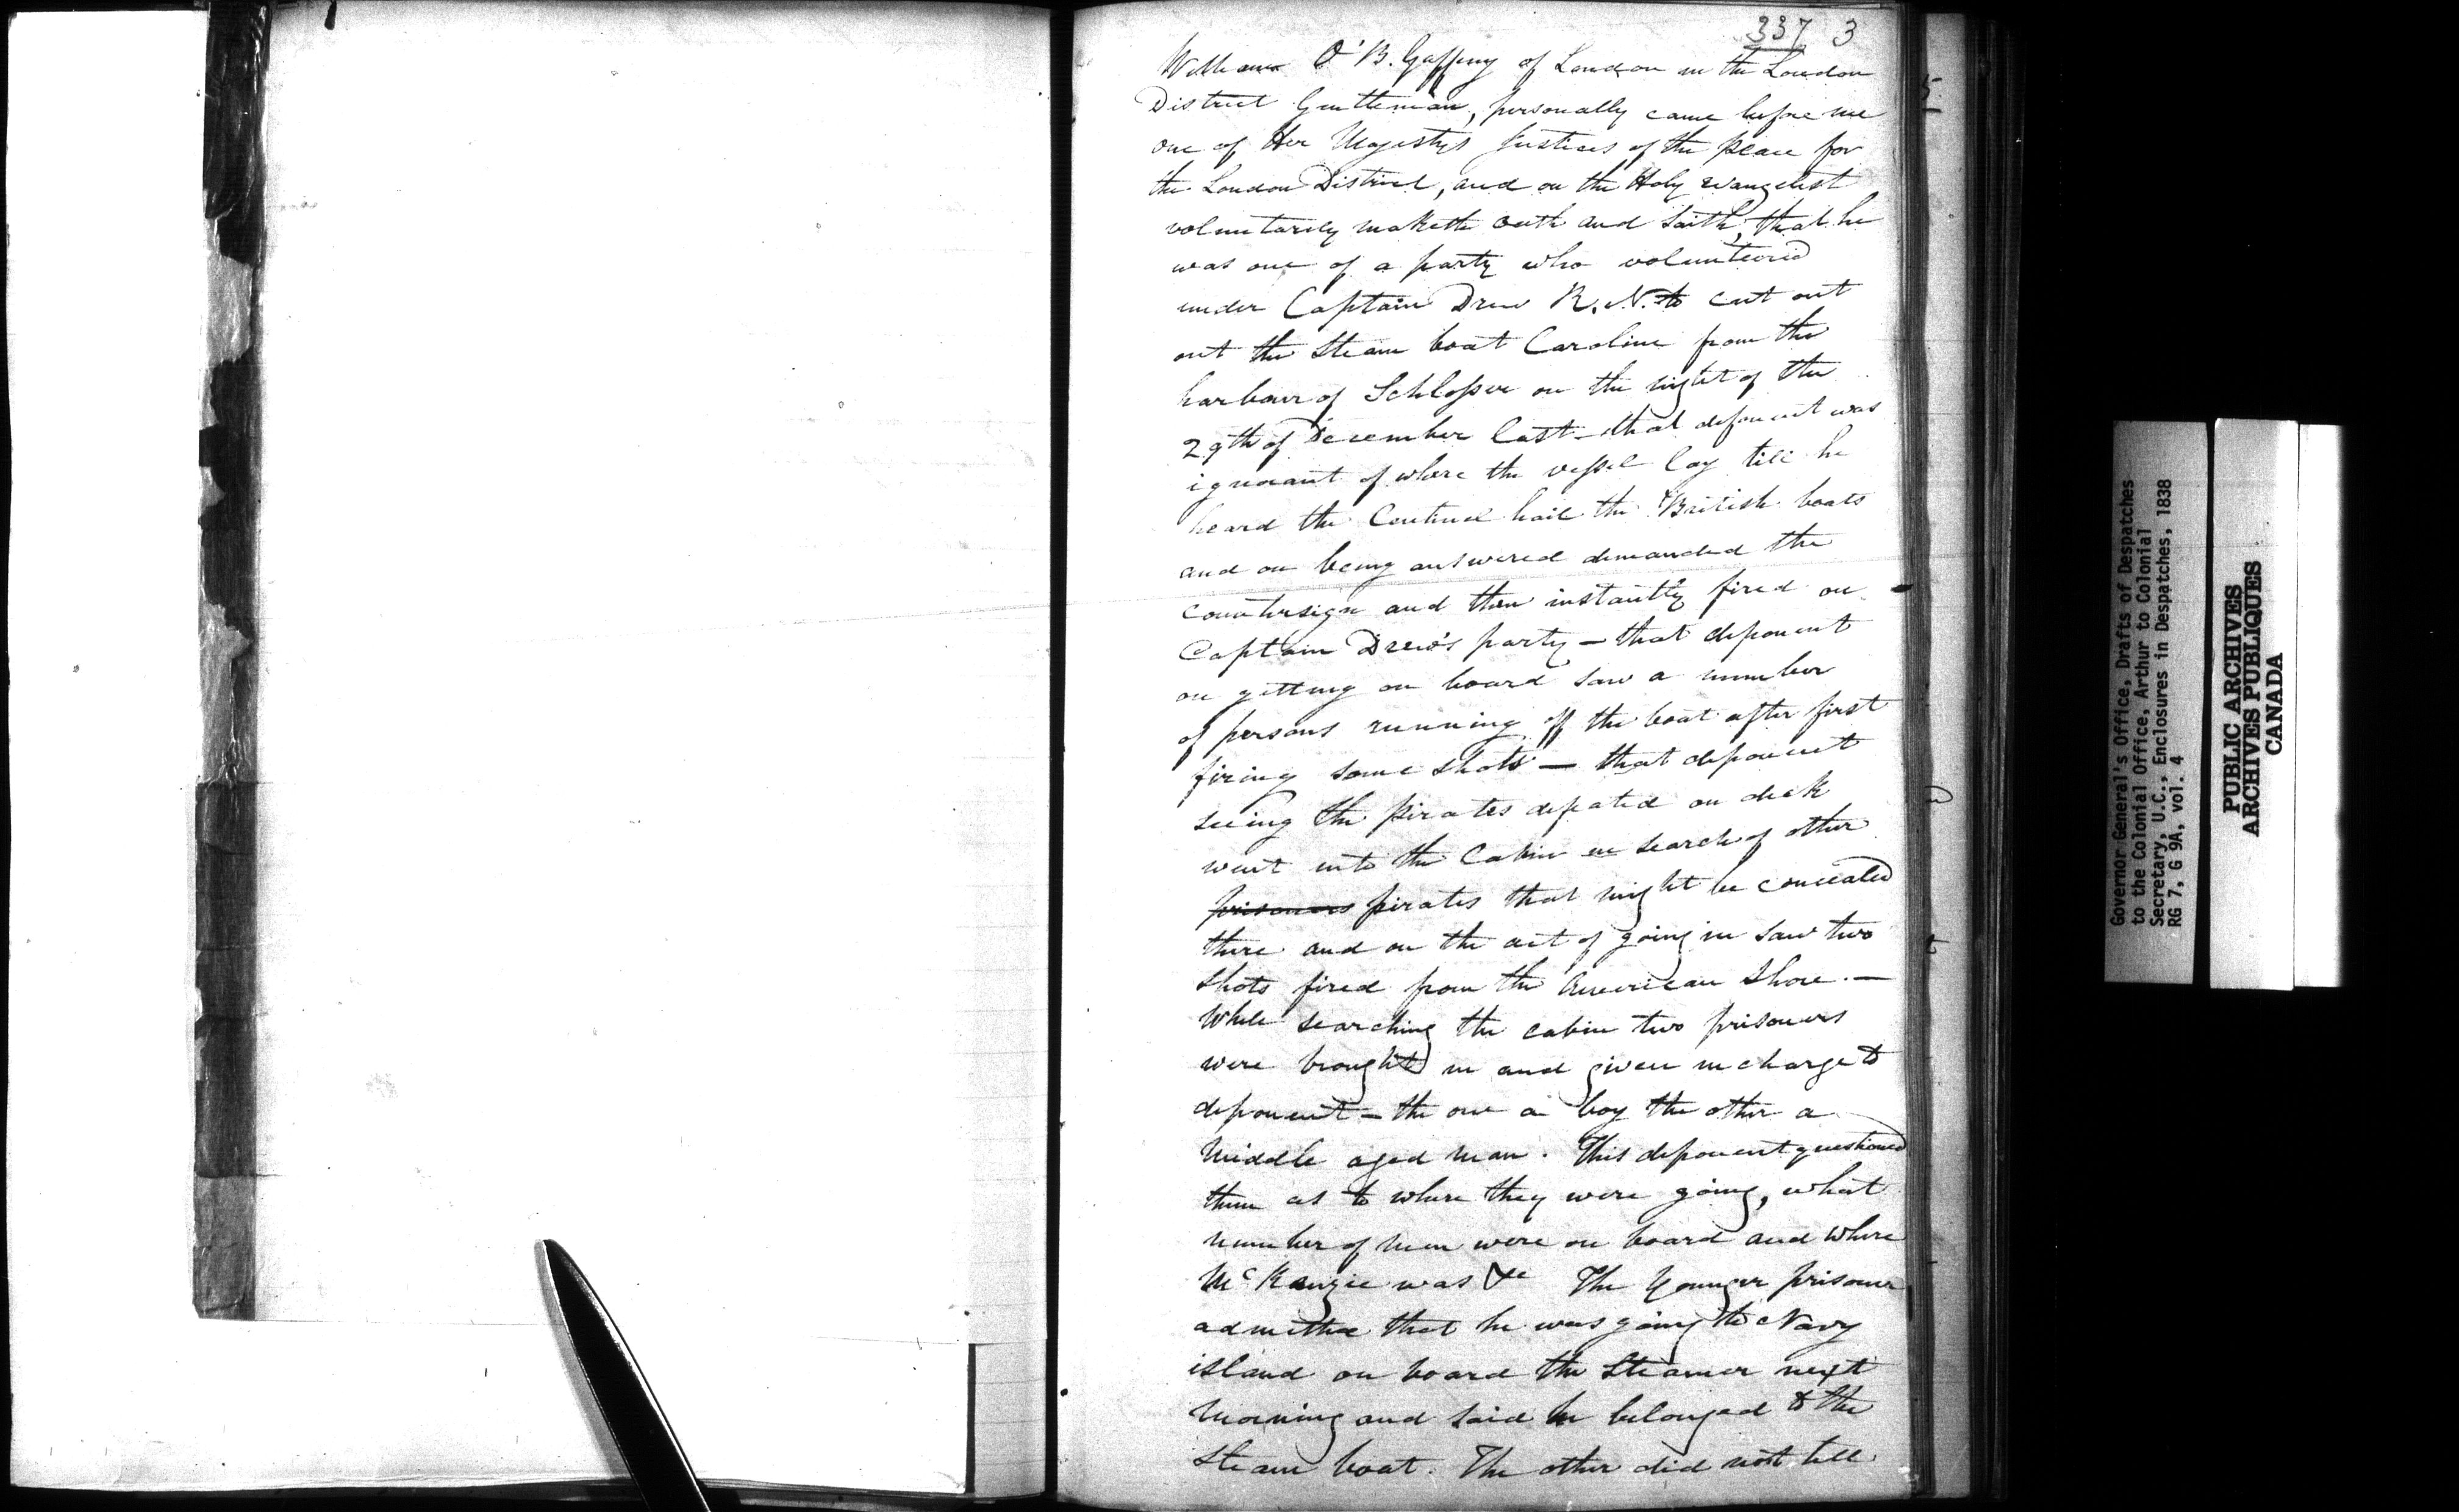 337 3
William O'B. Gaffeny of London in the London
District Gentleman, personally came before me
one of Her Majestys Justices of the peace for
the London District, and on the Holy evangelist
voluntarily maketh oath and saith, that he
was one of a party who volunteered
under Captain Drew R. N. to cut out
out the Steam boat Caroline from the
harbour of Schlosser on the night of the
29th of December last - that deponent was
ignorant of where the vessel lay till he
heard the Centinel hail the British boats
and on being answered demanded the
countersign and then instantly fired on
Captain Drew's party - that deponent
on getting on board saw a number
of persons running off the boat after first
firing some shots - that deponent
seeing the pirates defeated on deck
went into the Cabin in search of other
prisoners pirates that might be concealed
there and on the act of going in saw two
shots fired from the American Shore. -
While searching the cabin two prisoners
were brought in and given in charge to
deponent - the one a boy the other a
middle aged man. This deponent questioned
them as to where they were going, what
number of men were on board and where
McKenzie was &c The Younger prisoner
admitted that he was going to Navy
island on board the Steamer next
morning and said he belonged to the
Steam boat. The other did not tell
Governor General's Office, Drafts of Despatches
to the Colonial Office, Arthur to Colonial
Secretary, U.C., Enclosures in Despatches, 1838
RG 7, G 9A, vol. 4
PUBLIC ARCHIVES
ARCHIVES PUBLIQUES
CANADA